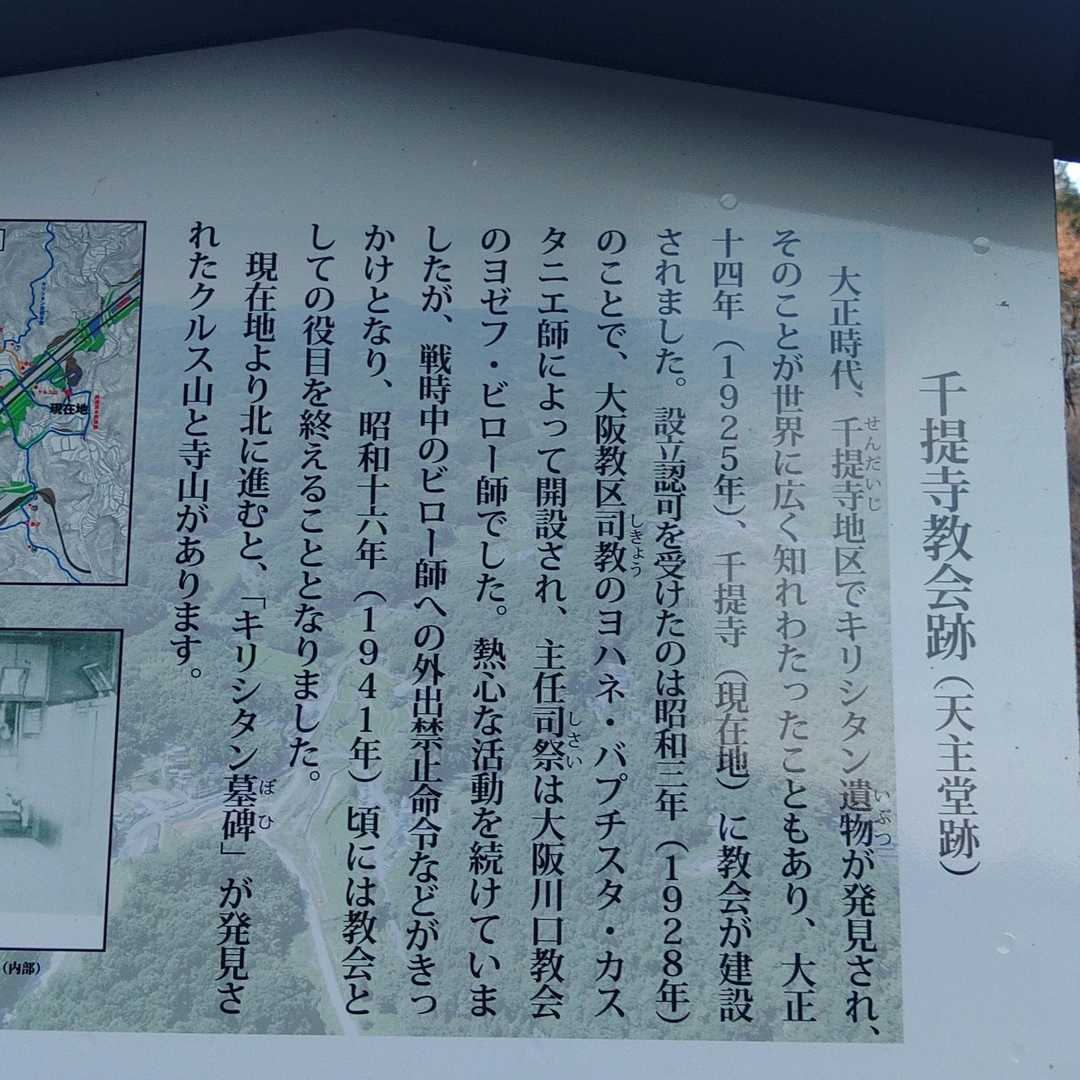 千提寺教会跡（天主堂跡）
大正時代、千提寺地区でキリシタン遺物が発見され、
せんだいじ
いぶつ
そのことが世界に広く知れわたったこともあり、大正
十四年（1925年）、千提寺（現在地）に教会が建設
されました。設立認可を受けたのは昭和三年（1928年）
のことで、大阪教区司教のヨハネ・バプチスタ・カス
しきょう
タニエ師によって開設され、主任司祭は大阪川口教会
しさい
のヨゼフ・ビロー師でした。熱心な活動を続けていま
したが、戦時中のビロー師への外出禁止命令などがきっ
かけとなり、昭和十六年（1941年）頃には教会と
しての役目を終えることとなりました。
現在地より北に進むと、「キリシタン墓碑」が発見さ
ぼひ
れたクルス山と寺山があります。
現在地
（内部）